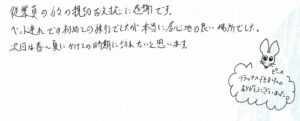 従業員の方々の親切な対応に感謝です。
ペット連れでの初めての旅行でしたが本当に居心地の良い場所でした。
次回は春〜夏にかけての時期に訪れたいと思います
ピース
リラックスできました。
ありがとうございました。